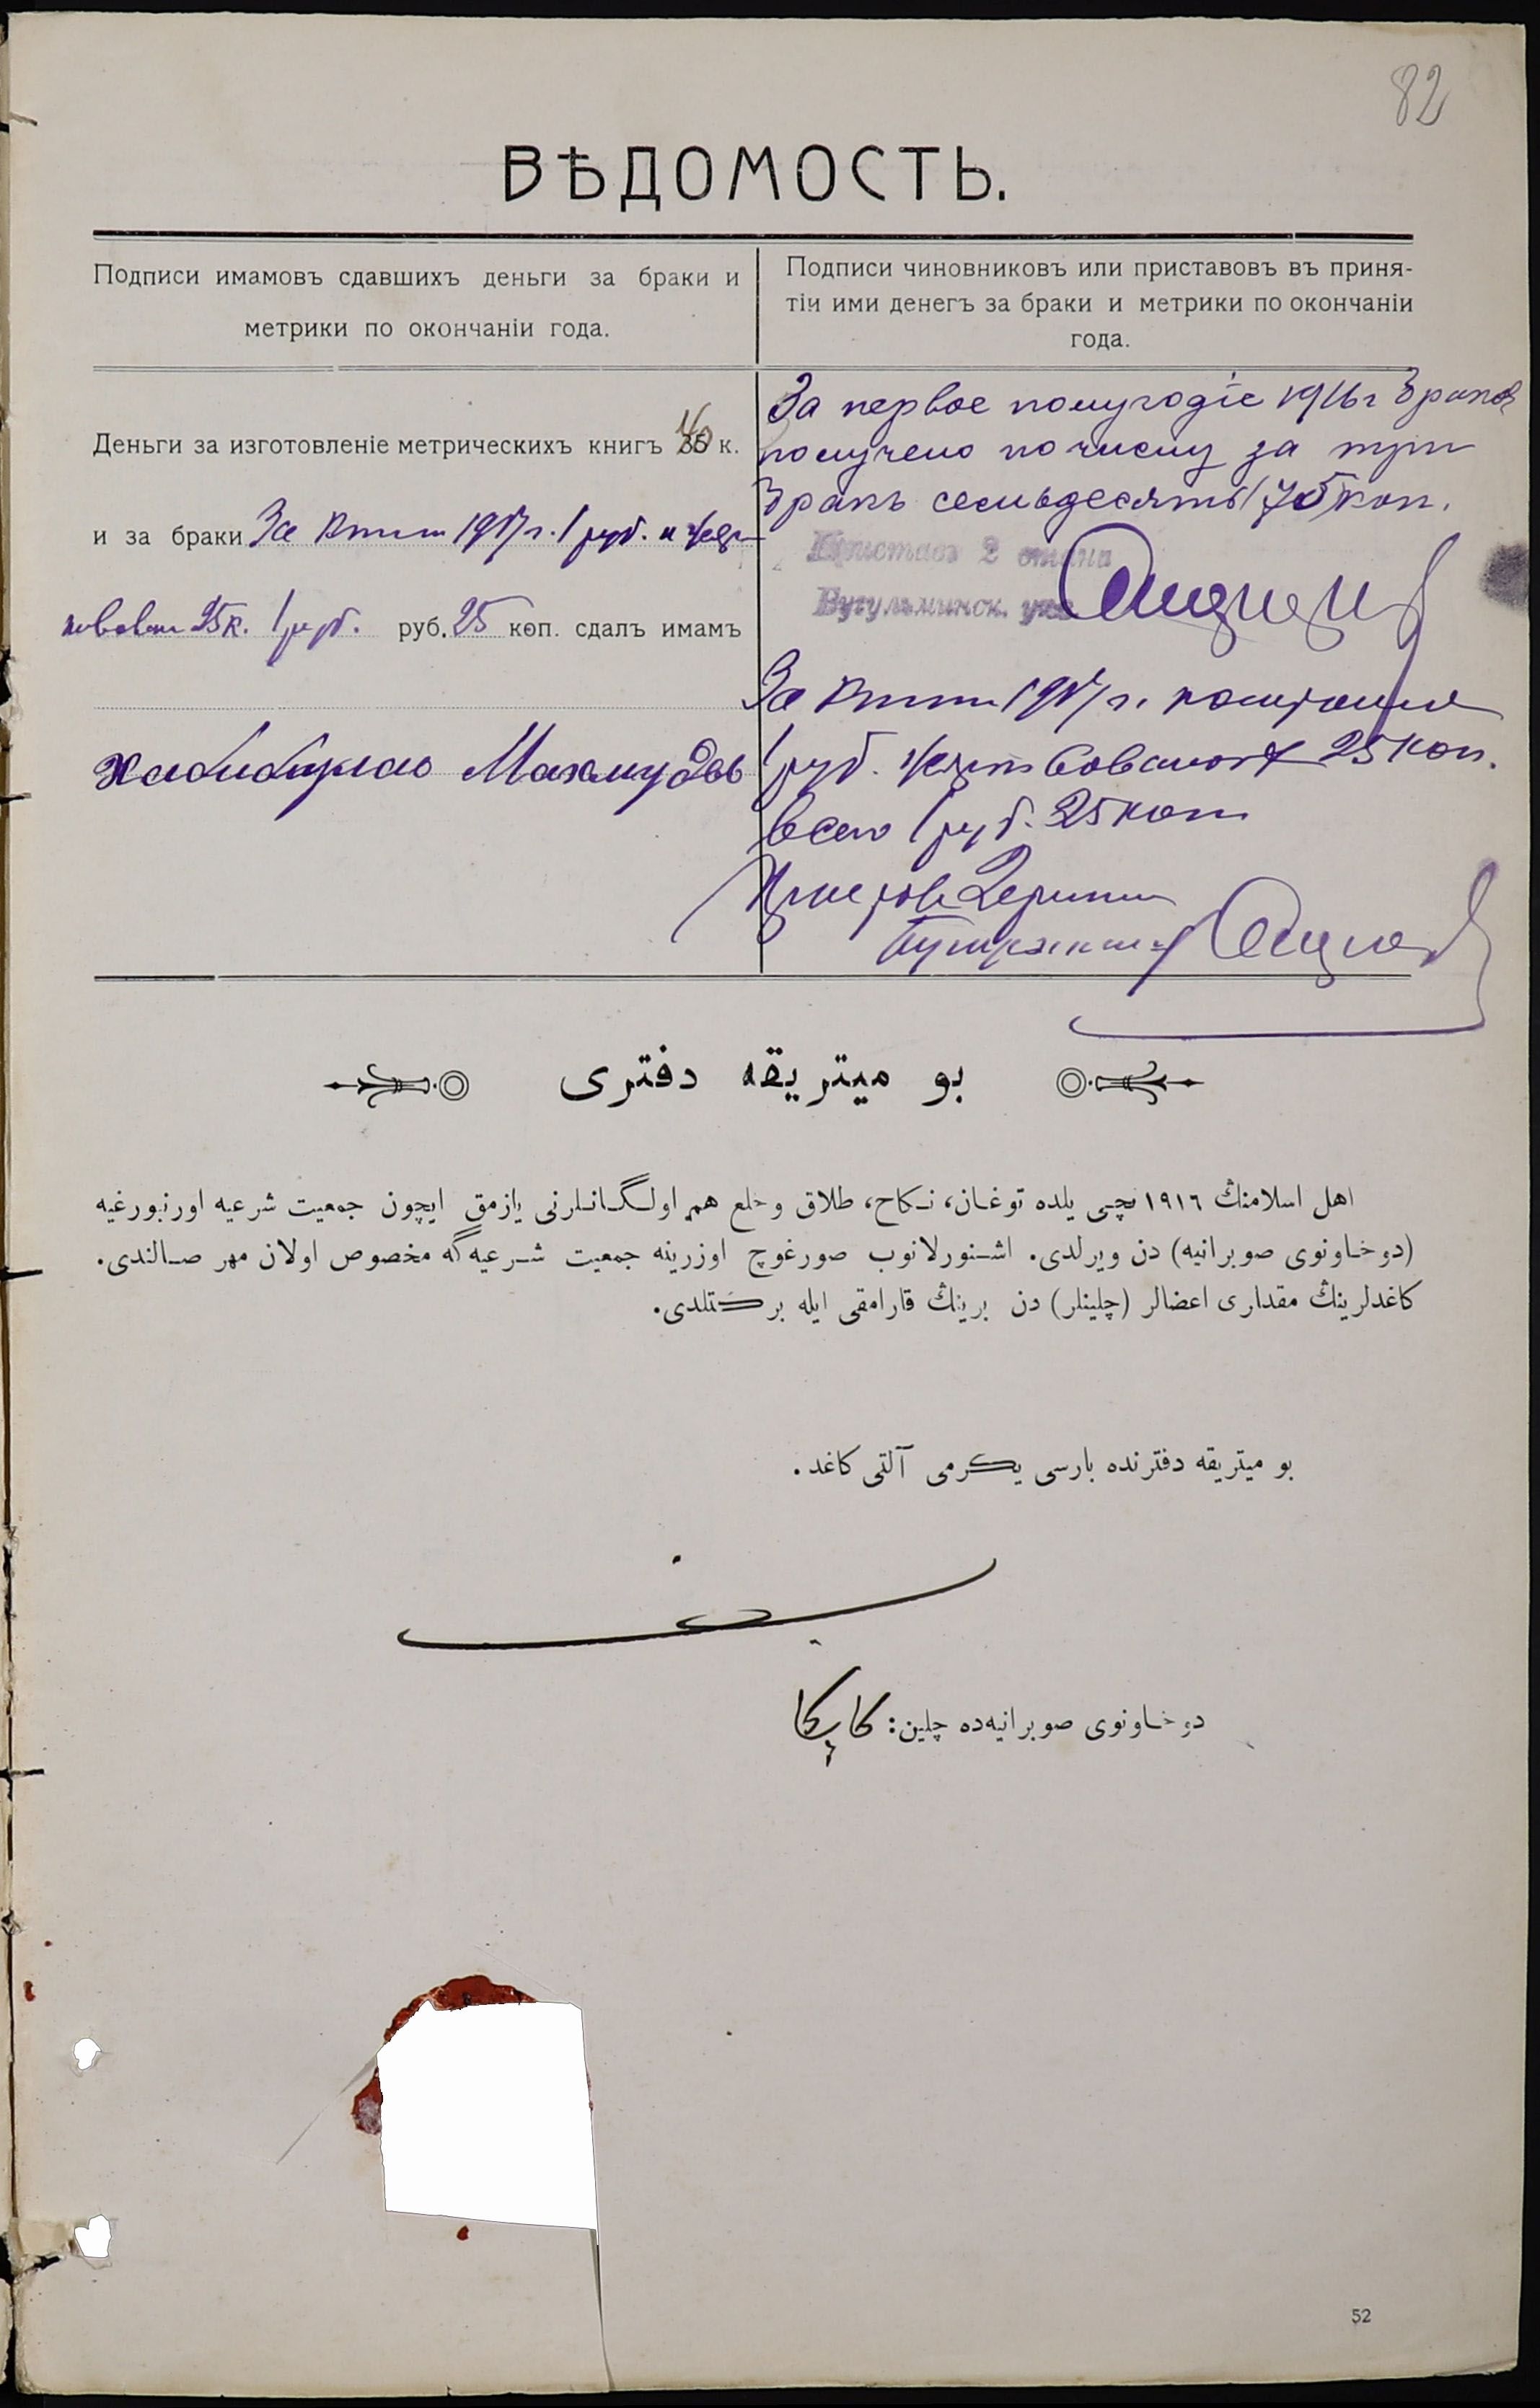 82
ВѢДОМОСТЬ.
Подписи имамовъ сдавшихъ деньги за браки и
метрики по окончаніи года.
Подписи чиновниковъ или приставовъ въ приня-
тіи ими денегъ за браки и метрики по окончаніи
года.
Деньги за изготовленіе метрическихъ книгъ 40 к.
и за браки За 1917 г. 1 руб. и
25 к. 1 руб. руб. 25 коп. сдалъ имамъ
Хабибулла Махмудовъ
За первое полугодіе 1916 г браков
получено по числу за три
бракъ семьдесятъ 75 коп.
Приставъ 2 стана
Бугульминск. уѣз.
За 1917 г.
1 руб. 25 коп.
всего 1 руб. 25 коп
بو ميتريقه دفترى
اهل اسلامنڭ ١٩١٦ نچى يلده توغـان، نـكاح، طلاق و خلع هم اولـگـانـلرنى يازمق ايچون جمعيت شرعيه اورنبورغيه
(دوخـاونوى صوبرانيه) دن ويرلدى. اشـنورلانوب صورغوچ اوزرينه جمعيت شـرعيه گه مخصوص اولان مهر صـالندى.
كاغدلرينڭ مقدارى اعضالر (چلينلر) دن برينڭ قارامقى ايله بركـتلدى.
بو ميتريقه دفترنده بارسى يكرمى آلتى كاغد.
دوخـاونوى صوبرانيه‌ده چلين:
52